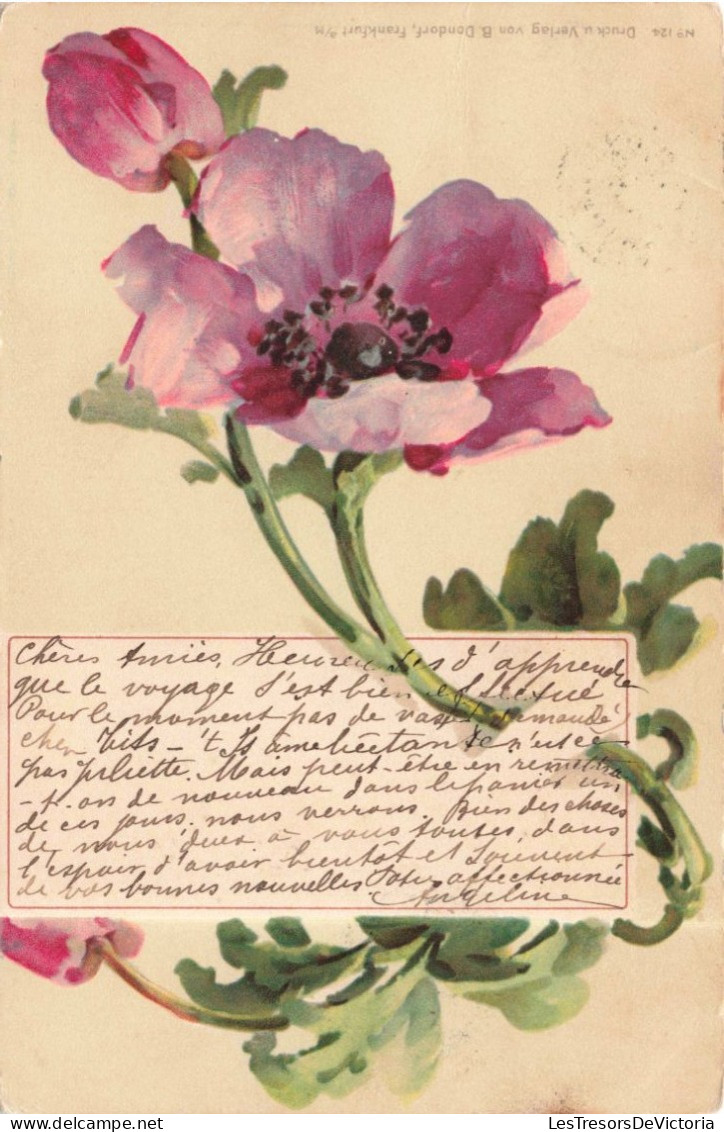 No 124 Druck u. Verlag von B. Dondorf, Frankfurt a/M
Chères Amies, Heureuses d'apprendre
que le voyage s'est bien effectué
Pour le moment pas de vases demandé
chez
pas Juliette. Mais peut-être en remettra
-t-on de nouveau dans le panier un
de ces jours. nous verrons. Bien des choses
de nous deux à vous toutes, dans
l'espoir d'avoir bientôt et souvent
de vos bonnes nouvelles Votre affectionnée
Angeline
LesTresorsDeVictoria
Delcampe.net